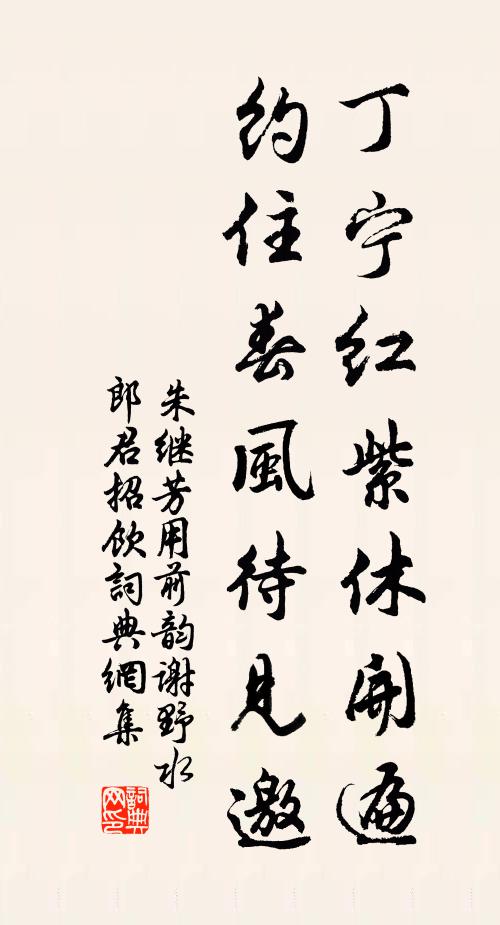 丁宁红紫休開遍
約住春風待見邀
朱继芳用前韵谢野水
郎君招飲詞典網集
詞典
网印